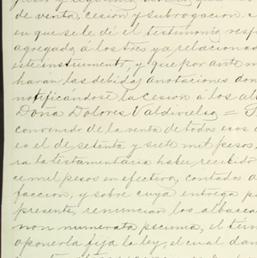 de venta, cesion y subrogacion. 
en que se le dé el testimonio resp
agregada a los tres ya relaciona
este instrumento, y que por ante m
haran las debidas anotaciones don
notificándose la cesion á los al
Doña Dolores Valdivielso =
convenido de la venta de todos esos 
es el de setenta y siete mil pesos,
ra la testamentaria haber recibido
ce mil pesos en efectivo, contados a
faccion, y sobre cuya entrega p
presente, renuncian los albacea
non numerata pecunia, el term
oponerla fija la ley, el cual dan